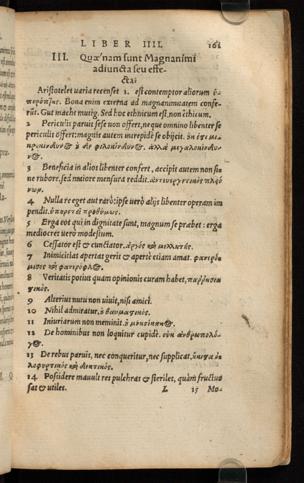 LIBER IIII. 161
III. Quæ'nam sunt Magnanimi
adiuncta seu effe-
cta:
Aristoteles uaria recenset 1. est contemptor aliorum
Bona enim externa ad magnanimitatem confe-
rūt. Gut macht mutig. Sed hoc ethnicum est, non ethicum.
2 Periculis paruis sese non offert, neque omnino libenter se
periculis offert: magnis autem intrepidè se obijcit.
3 Beneficia in alios libenter confert, accipit autem non si-
ne rubore, sed maiore mensura reddit.
4 Nulla re eget aut rarò: ipse uerò alijs libenter operam im
pendit.
5 Erga eos qui in dignitate sunt, magnum se præbet: erga
mediocres uerò modestum.
6 Cessator est & cunctator.
7 Inimicitias apertas gerit & apertè etiam amat.
8 Veritatis potius quàm opinionis curam habet,
9 Alterius nutu non uiuit, nisi amici.
10 Nihil admiratur,
11 Iniuriarum non meminit.
12 De hominibus non loquitur cupidè.
13 De rebus paruis, nec conqueritur, nec supplicat,
14 Possidere mauult res pulchras & steriles, quàm fructuo
sas & utiles. L 15 Mo-